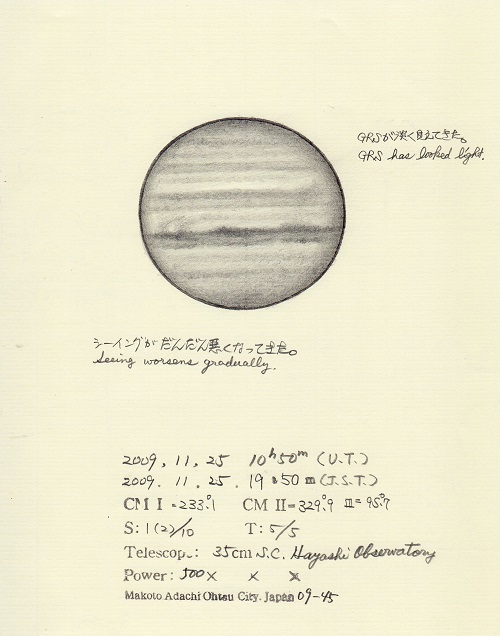 GRSが淡く見えてきた。
GRS has looked light.
シーイングがだんだん悪くなってきた。
Seeing worsens gradually.
2009, 11, 25 10h50m (U.T.)
2009. 11. 25. 19h50m (J.S.T.)
CM I = 233°.1 CM II = 329°.9 III = 95°.7
S: 1(2)/10 T: 5/5
Telescop.: 35cm S.C. Hayashi Observatory
Power: 500× × ×
Makoto Adachi Ohtsu City. Japan 09-45